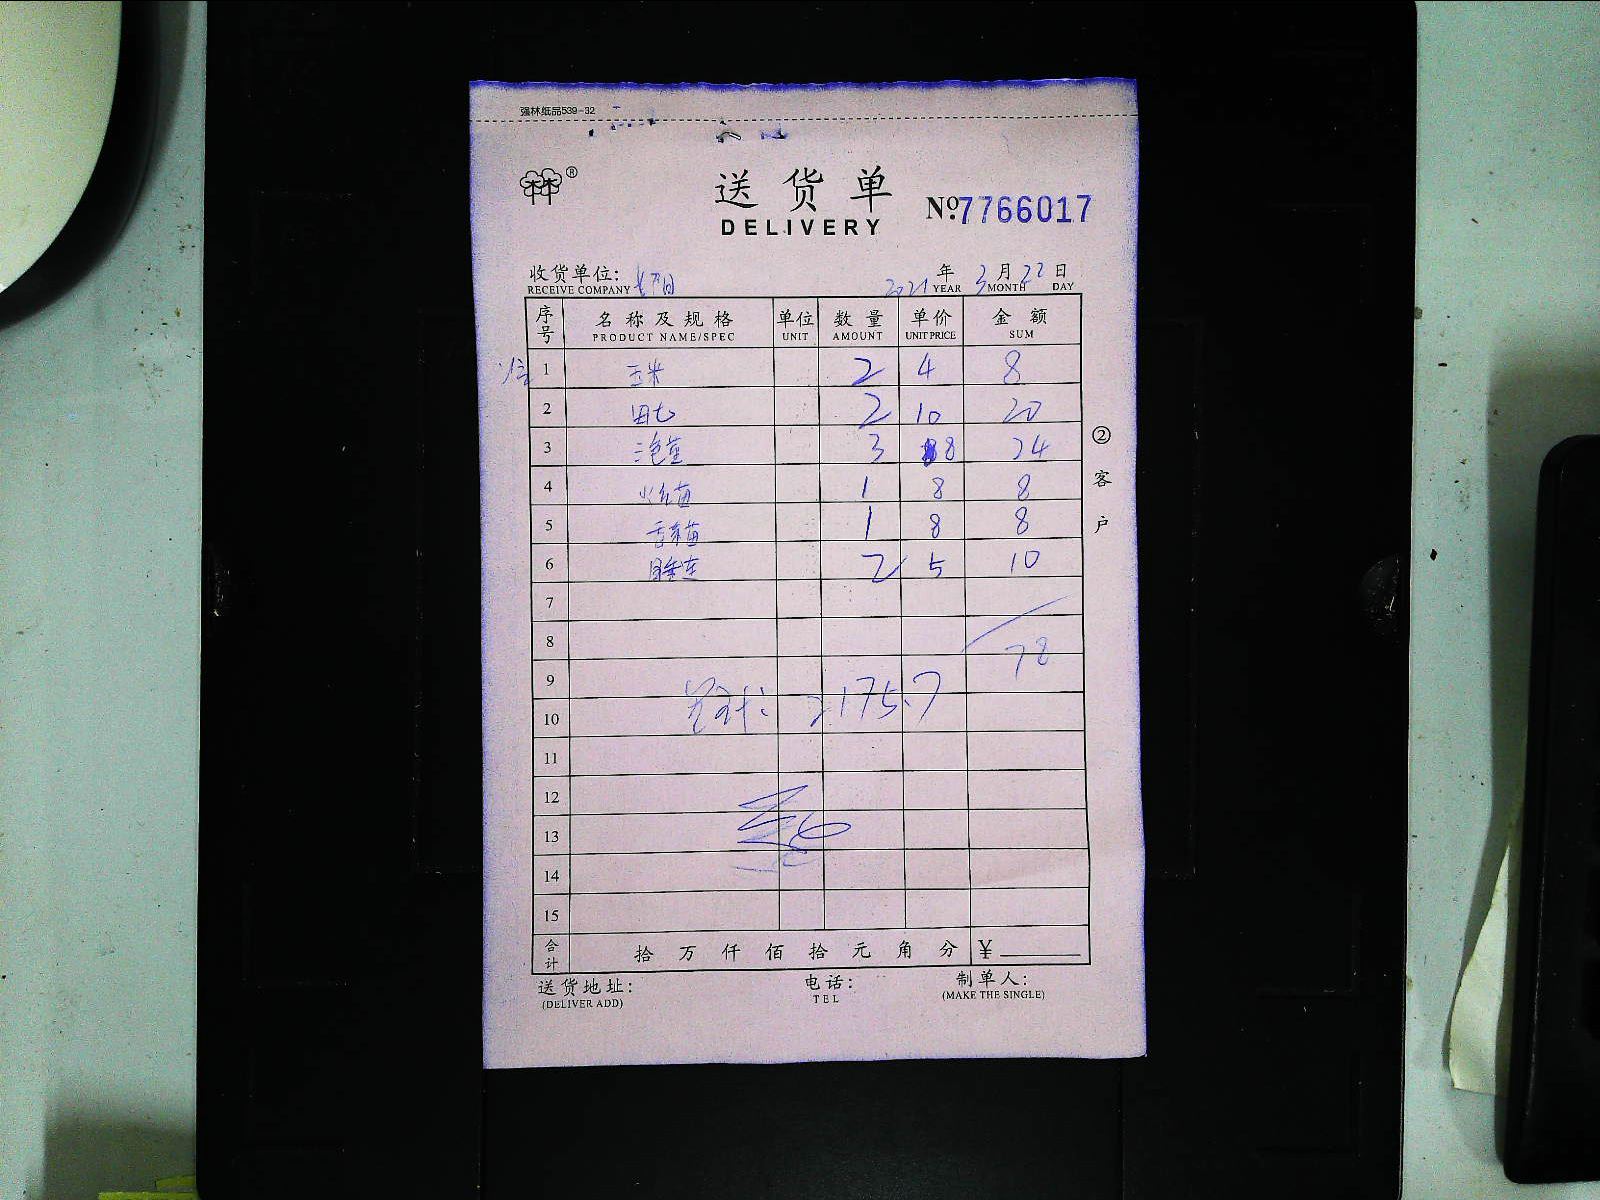 强林纸品539-32
®
送货单
DELIVERY
№7766017
收货单位:
2021年3月22日
RECEIVE COMPANY YEAR MONTH DAY
序号 名称及规格 单位 数量 单价 金额
PRODUCT NAME/SPEC UNIT AMOUNT UNIT PRICE SUM
1 玉米 2 4 8
2 田七 2 10 20
3 3 8 24
4 1 8 8
5 1 8 8
6 2 5 10
7
8 78
9
10 2175.7
11
12
13
14
15
合计 拾万仟佰拾元角分 ¥
②客户
送货地址: 电话: 制单人:
(DELIVER ADD) TEL (MAKE THE SINGLE)